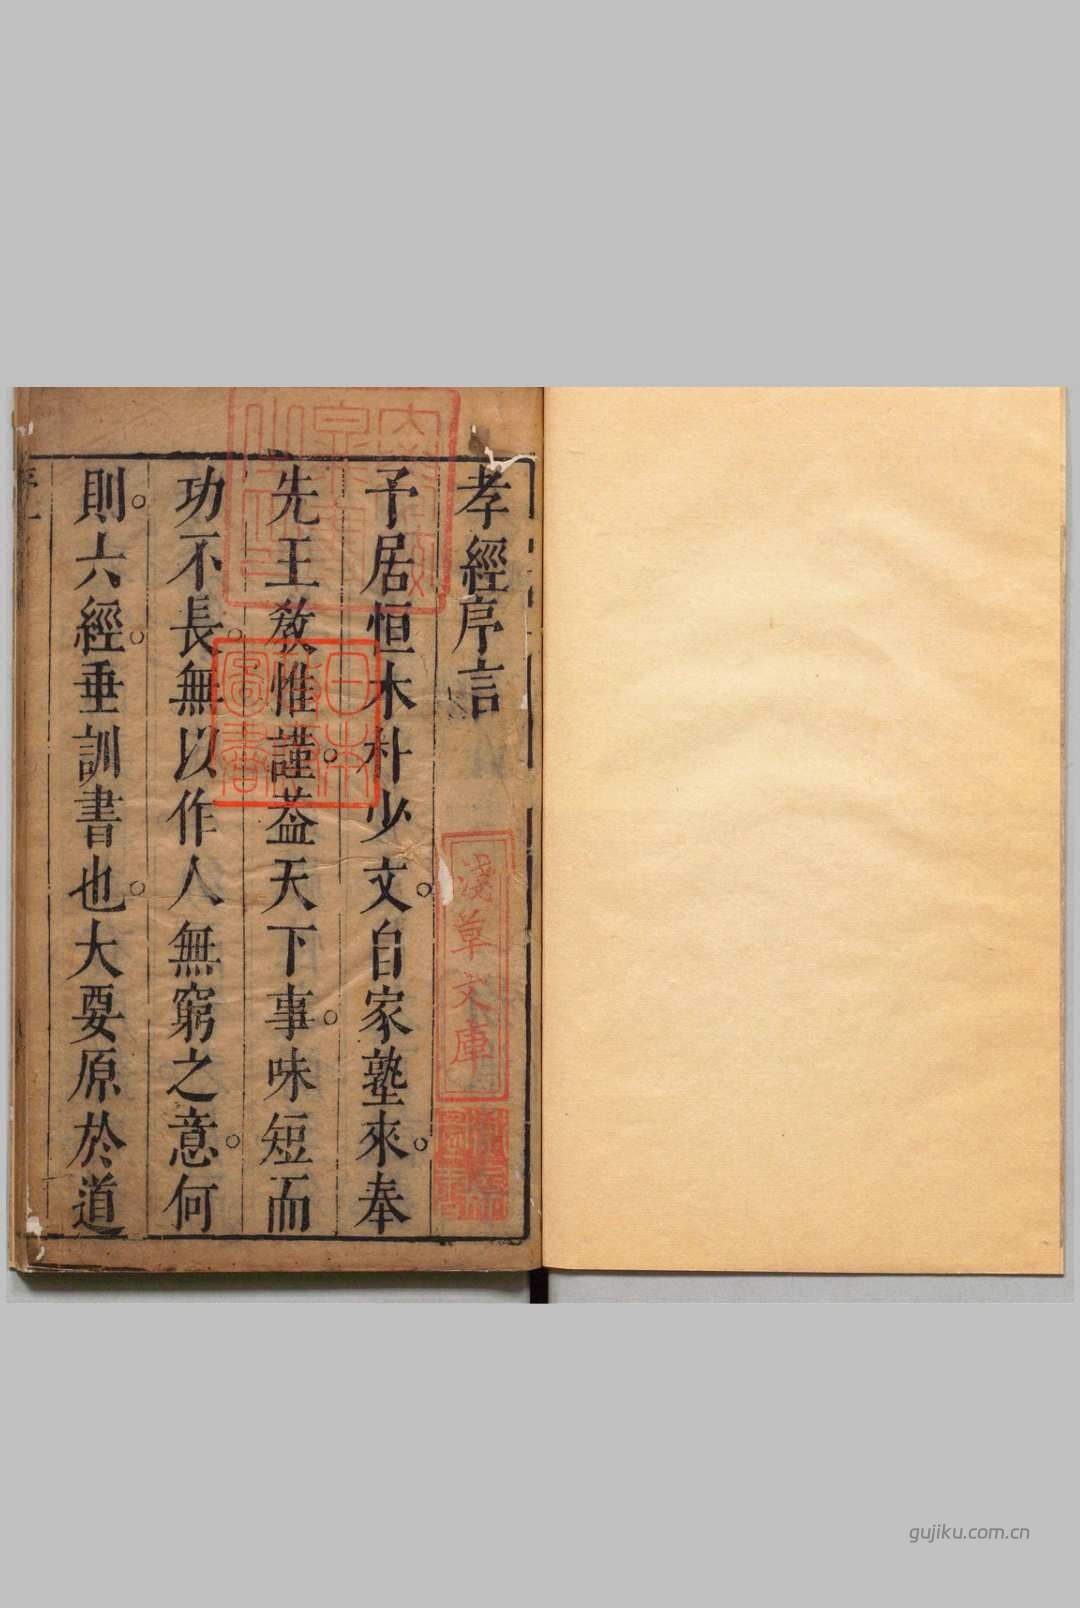 孝經序言
予居恒木朴少文。自家塾來。奉
先王敎惟謹。葢天下事。味短而
功不長。無以作人無窮之意。何
則。六經。垂訓書也。大要原於道
日本政府圖書
淺草文庫
gujiku.com.cn